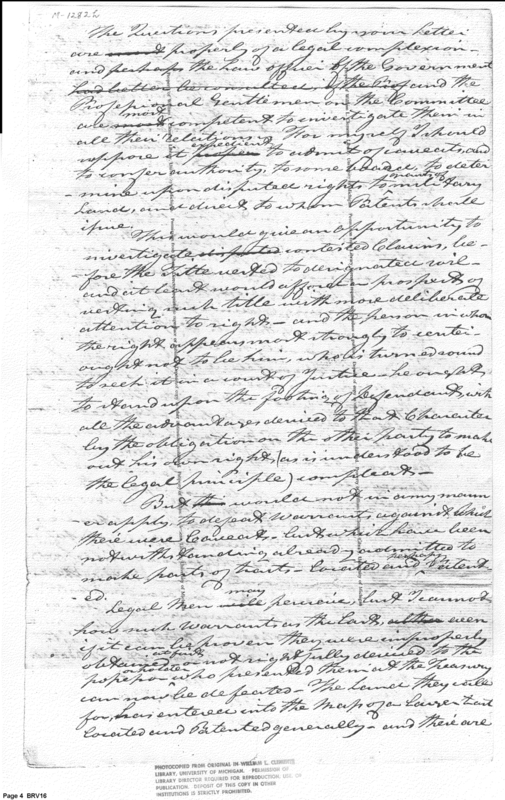 M-1282½
The Questions presented by your Letter
are most properly of a legal complexion
and perhaps the Law officer of the Government
had better be consulted, & the Prof and the
Professional Gentlemen on the Committee
most
are most competent to investigate them in
all their relations. For myself I should
expedient
suppose it proper to admit of caveats, and
to confer authority, to some board, to deter
- mine upon disputed rights to military
Land, and direct to whom Patents shall
issue.
This would give an opportunity to
investigate disputed contested Claims, be-
fore the Title vested to designated
and at least would afford a prospect of
vesting such title with more deliberate
attention to rights - and the person in whom
the right appears most strongly to center
ought not to be him, who is turned round
to seek it in a court of Justice - he ought
to stand upon the footing of Defendant, with
all the advantages derived to that Character
by the obligation on the other party to make
out his own right, (as is understood to be
the legal principle) compleat -
But this would not in any mann
er apply, to defeat warrants against which
there were Caveats - but which have been
notwithstanding already admitted to
perhaps
make parts of tracts - Located and Patent
- ed.
may
Legal Men will perceive, but I cannot
how such Warrants as the last, even
if it can be proven they were improperly
obtained or not rightfully derived to the
holder
who presented them at the Treasury
can now be defeated - The Land they call
for, has entered into the Mass of a Larger tract
Located and Patented generally - and there are
PHOTOCOPIED FROM ORIGINAL IN WILLIAM L. CLEMENTS
LIBRARY, UNIVERSITY OF MICHIGAN. PERMISSION OF
LIBRARY DIRECTOR REQUIRED FOR REPRODUCTION, USE OR
PUBLICATION. DEPOSIT OF THIS COPY IN OTHER
INSTITUTIONS IS STRICTLY PROHIBITED.
Page 4 BRV16